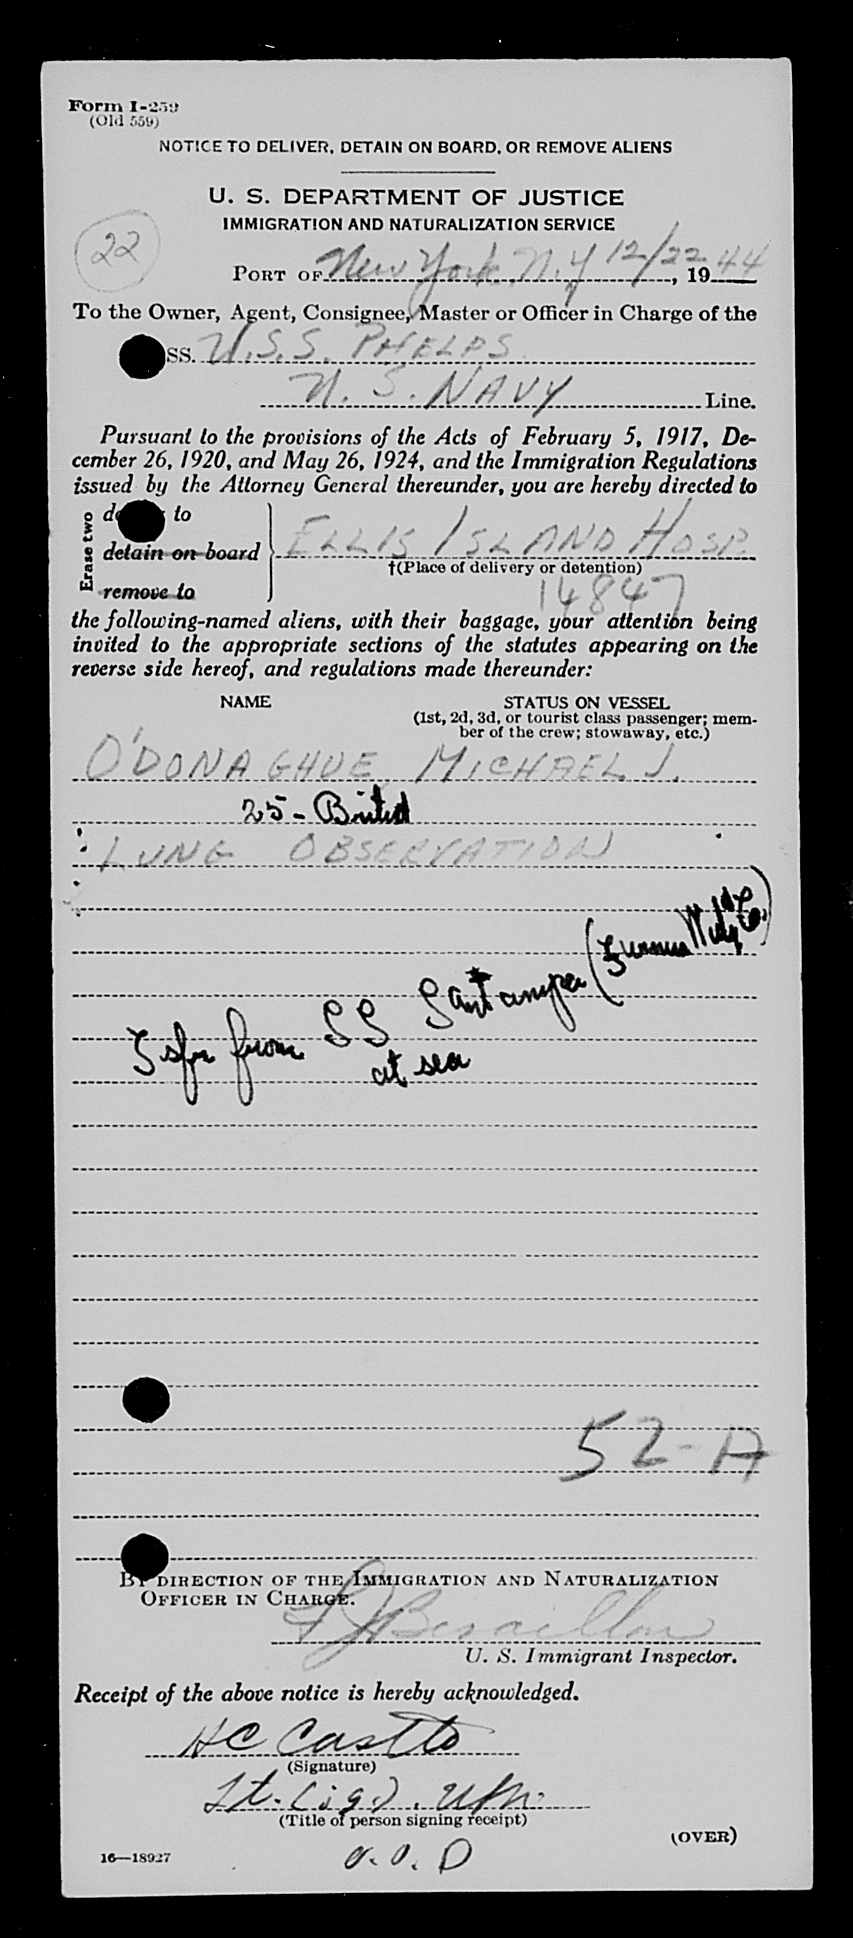 Form I-259
(Old 559)
NOTICE TO DELIVER, DETAIN ON BOARD, OR REMOVE ALIENS
U. S. DEPARTMENT OF JUSTICE
IMMIGRATION AND NATURALIZATION SERVICE
22
PORT OF New York, N.Y 12/22, 1944
To the Owner, Agent, Consignee, Master or Officer in Charge of the
SS. U.S.S. PHELPS
U.S. NAVY Line.
Pursuant to the provisions of the Acts of February 5, 1917, De-
cember 26, 1920, and May 26, 1924, and the Immigration Regulations
issued by the Attorney General thereunder, you are hereby directed to
Erase two
to
detain on board
remove to
ELLIS ISLAND HOSP.
†(Place of delivery or detention)
14847
the following-named aliens, with their baggage, your attention being
invited to the appropriate sections of the statutes appearing on the
reverse side hereof, and regulations made thereunder:
NAME STATUS ON VESSEL
(1st, 2d, 3d, or tourist class passenger; mem-
ber of the crew; stowaway, etc.)
O'DONAGHUE MICHAEL J.
25 - British
LUNG OBSERVATION
Tsfr from SS
at sea
52-A
BY DIRECTION OF THE IMMIGRATION AND NATURALIZATION
OFFICER IN CHARGE.
U. S. Immigrant Inspector.
Receipt of the above notice is hereby acknowledged.
HC
(Signature)
Lt. (jg).
(Title of person signing receipt)
O.O.D
(OVER)
16—18927